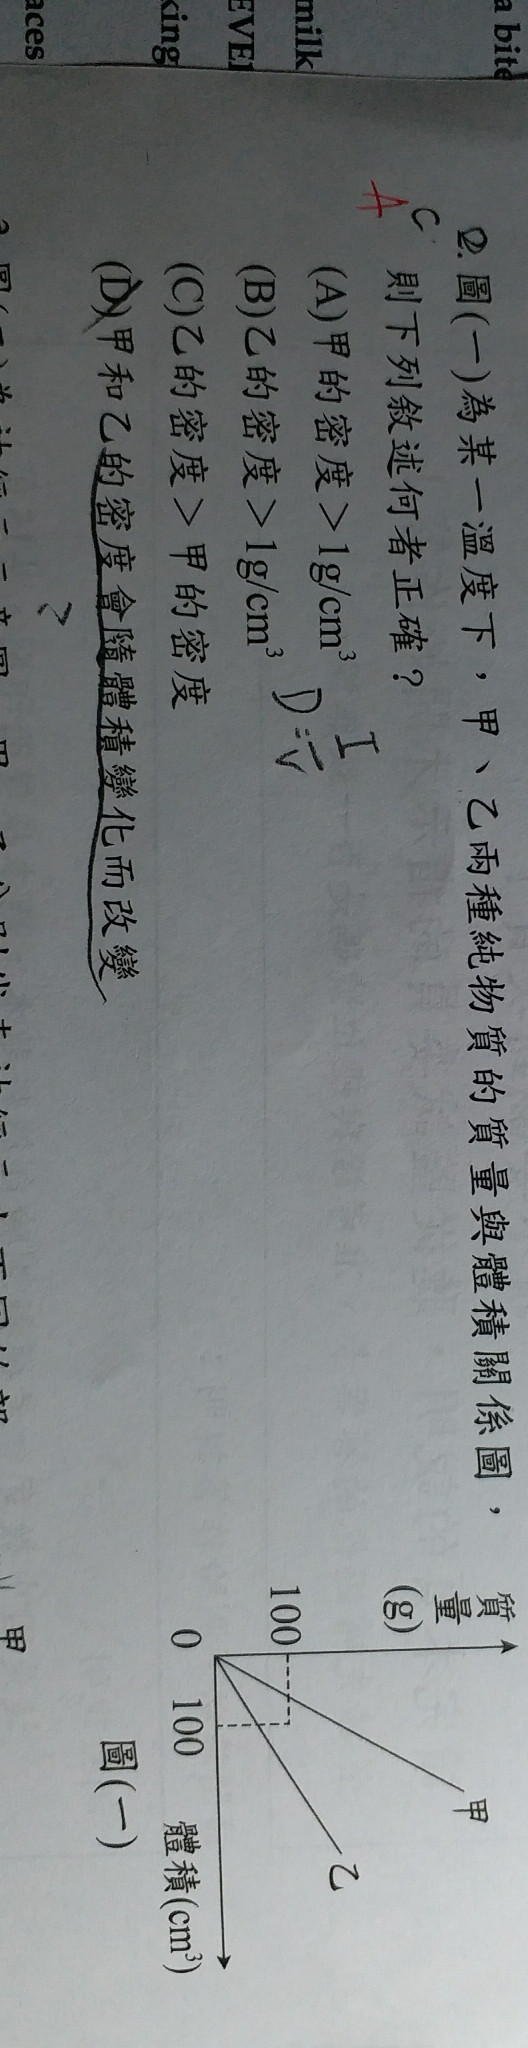 a bite
milk
EVE
king
aces
2. 圖(一)為某一溫度下，甲、乙兩種純物質的質量與體積關係圖，
C
A
則下列敘述何者正確？
(A)甲的密度＞1g/cm³
(B)乙的密度＞1g/cm³
(C)乙的密度＞甲的密度
(D)甲和乙的密度會隨體積變化而改變
?
質量
(g)
100
0
100
體積(cm³)
甲
乙
圖(一)
甲